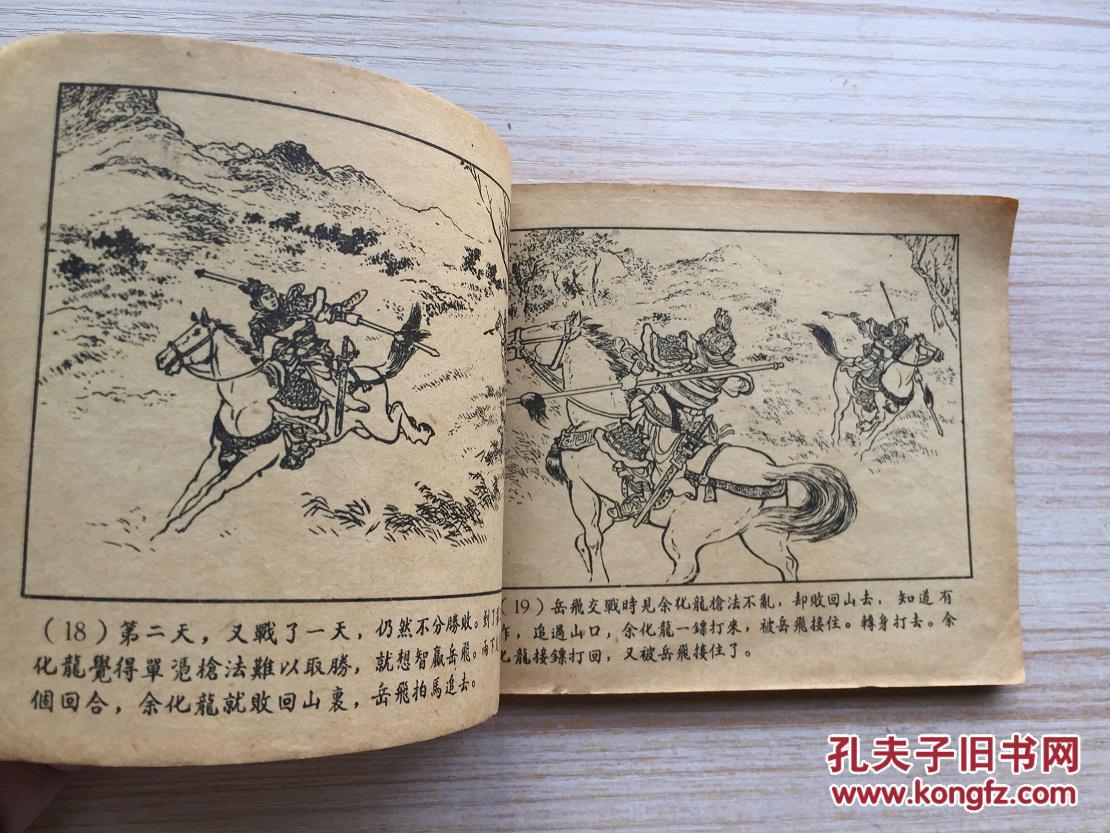 (18) 第二天，又戰了一天，仍然不分勝敗。到了
化龍覺得單憑槍法難以取勝，就想智贏岳飛。兩下
個回合，余化龍就敗回山裏，岳飛拍馬追去。
(19) 岳飛交戰時見余化龍槍法不亂，却敗回山去，知道有
，追過山口，余化龍一鏢打來，被岳飛接住。轉身打去。余
化龍接鏢打回，又被岳飛接住了。
孔夫子旧书网
www.kongfz.com